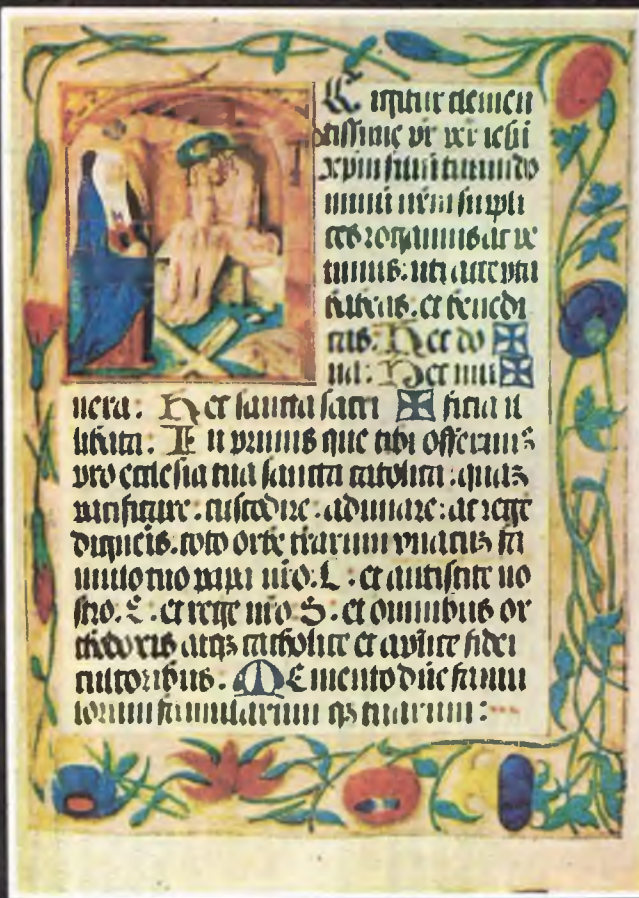 E igitur clemen
tissime pr per iesu
xpm filium tuum do
minu nrm supli
ces rogamus ac pe
timus: uti accepta
habeas. et benedi
cas. Hec do ✠
na: Hec mu ✠
nera: Hec sancta sacri ✠ ficia il
libata. In primis que tibi offerim9
pro ecclesia tua sancta catolica: quaz
pacificare. custodire. adunare: at rege
digneis. toto orbe terarum fa
mulo tuo papa nro. L. et antistite no
stro. L. et rege nro. S. et omnibus or
thodoxis atqz catholice et aplice fidei
cultoribus. Memento dne famu
lorum famularum qz tuarum: